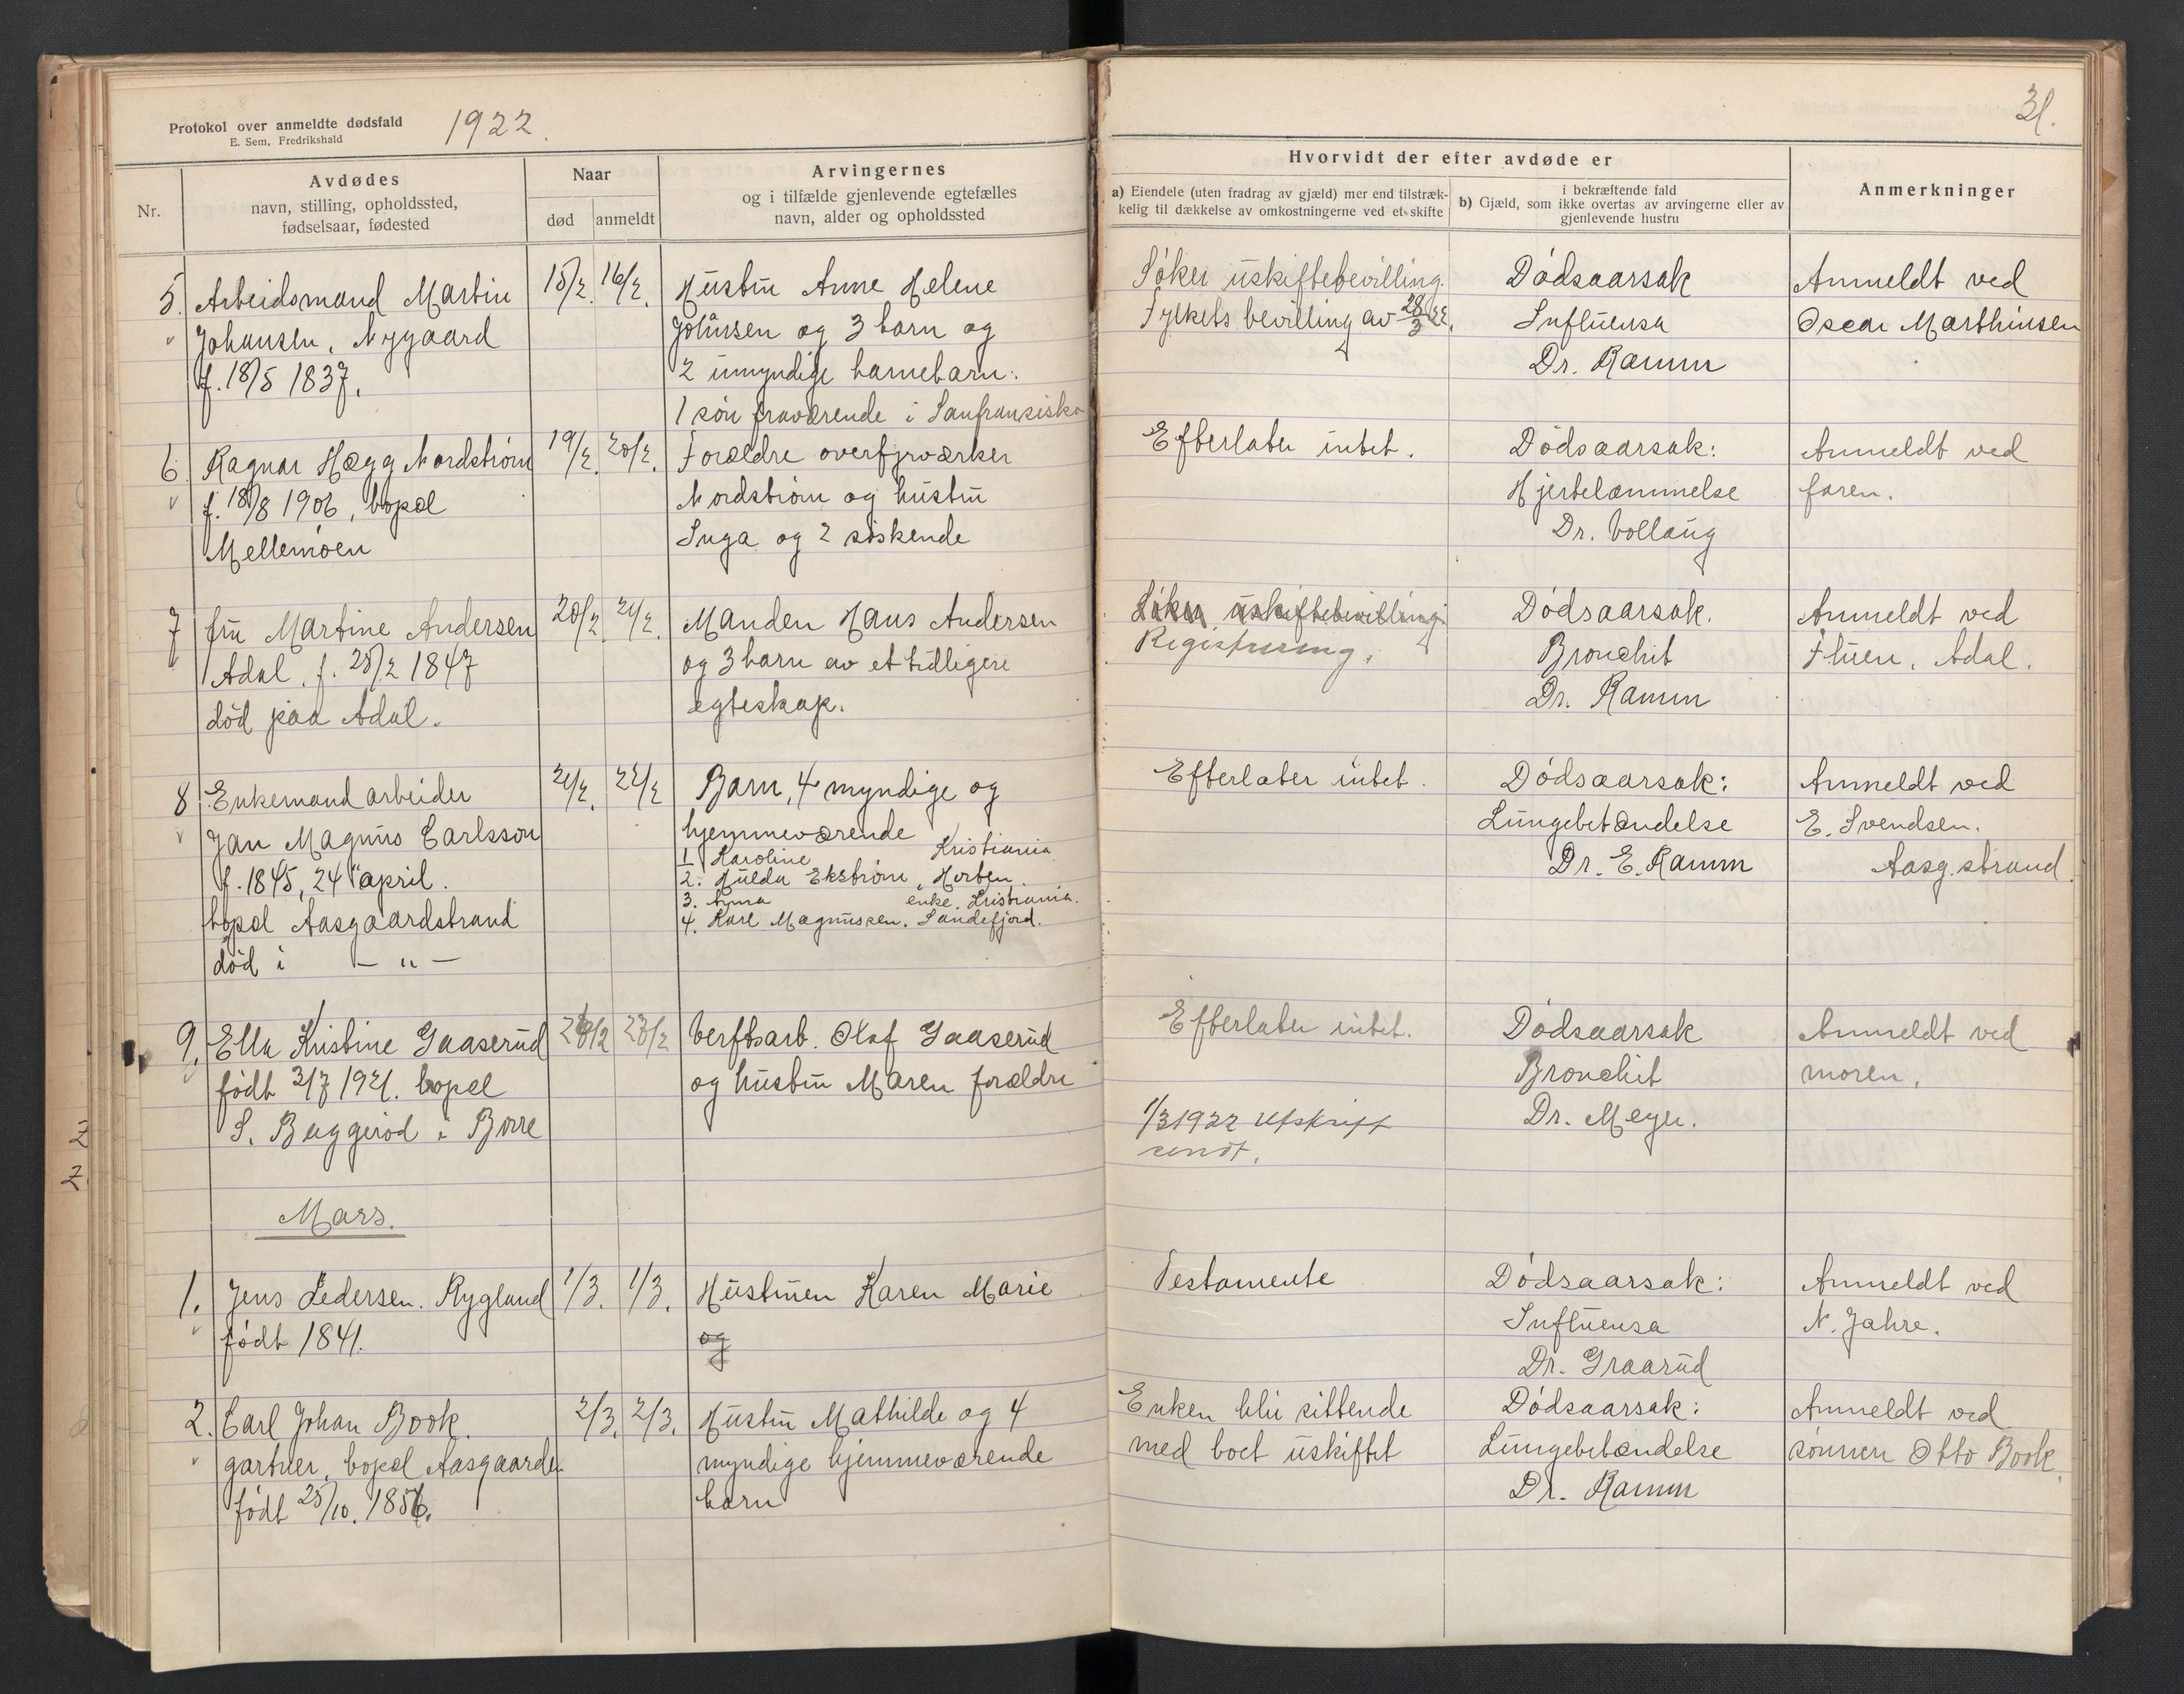 Protokol over anmeldte dødsfald
E. Sem, Fredrikshald
1922.
Nr.
Avdødes
navn, stilling, opholdssted,
fødselsaar, fødested
Naar
død
anmeldt
Arvingernes
og i tilfælde gjenlevende egtefælles
navn, alder og opholdssted
5. Arbeidsmand Martin
Johansen, Nygaard
f. 18/5 1837.
15/2. 16/2.
Hustru Anne Helene
Johansen og 3 barn og
2 umyndige barnebarn.
1 søn fraværende i Sanfransisko
6. Ragnar Hægg Nordstrøm
f. 18/8 1906, bopæl
Mellemoen
19/2. 20/2.
Forældre overfyrværker
Nordstrøm og hustru
Inga og 2 søskende
7 fru Martine Andersen
Adal. f. 25/2 1847
død paa Adal.
20/2. 21/2.
Manden Hans Andersen
og 3 barn av et tidligere
egteskap.
8 Enkemand arbeider
Jan Magnus Carlsson
f. 1845, 24 april.
bopæl Aasgaardstrand
død i — " —
21/2. 22/2
Barn, 4 myndige og
hjemmeværende
1 Karoline Kristiania
2. Hulda Ekstrøm, Horten.
3. Anna enke, Kristiania.
4. Karl Magnussen. Sandefjord.
9. Ella Kristine Gaaserud
født 3/7 1921. bopæl
S. Baggerød i Borre
23/2
Verftsarb. Olaf Gaaserud
og hustru Maren forældre
Mars.
1. Jens Pedersen. Rygland
født 1841.
1/3. 1/3.
Hustruen Karen Marie
og
2. Carl Johan Book.
gartner, bopæl Aasgaarden
født 25/10. 1856.
2/3. 2/3.
Hustru Mathilde og 4
myndige hjemmeværende
barn
31.
Hvorvidt der efter avdøde er
a) Eiendele (uten fradrag av gjæld) mer end tilstræk-
kelig til dækkelse av omkostningerne ved et skifte
i bekræftende fald
b) Gjæld, som ikke overtas av arvingerne eller av
gjenlevende hustru
Anmerkninger
Søker uskiftebevilling.
Fylkets bevilling av 28/3 22.
Dødsaarsak
Influensa
Dr. Ramm
Anmeldt ved
Oscar Marthinsen
Efterlater intet.
Dødsaarsak:
Hjertelammelse
Dr. Vollaug
Anmeldt ved
faren.
Søker uskiftebevilling
Registrering.
Dødsaarsak.
Bronchit
Dr. Ramm
Anmeldt ved
Thuen, Adal.
Efterlater intet.
Dødsaarsak:
Lungebetændelse
Dr. E. Ramm
Anmeldt ved
E. Svendsen.
Aasg.strand.
Efterlater intet.
1/3 1922 Utskrift
sendt.
Dødsaarsak
Bronchit
Dr. Meyer.
Anmeldt ved
moren.
Testamente
Dødsaarsak:
Influensa
Dr. Graarud
Anmeldt ved
N. Jahre.
Enken blir sittende
med boet uskiftet
Dødsaarsak:
Lungebetændelse
Dr. Ramm
Anmeldt ved
sønnen Otto Book.